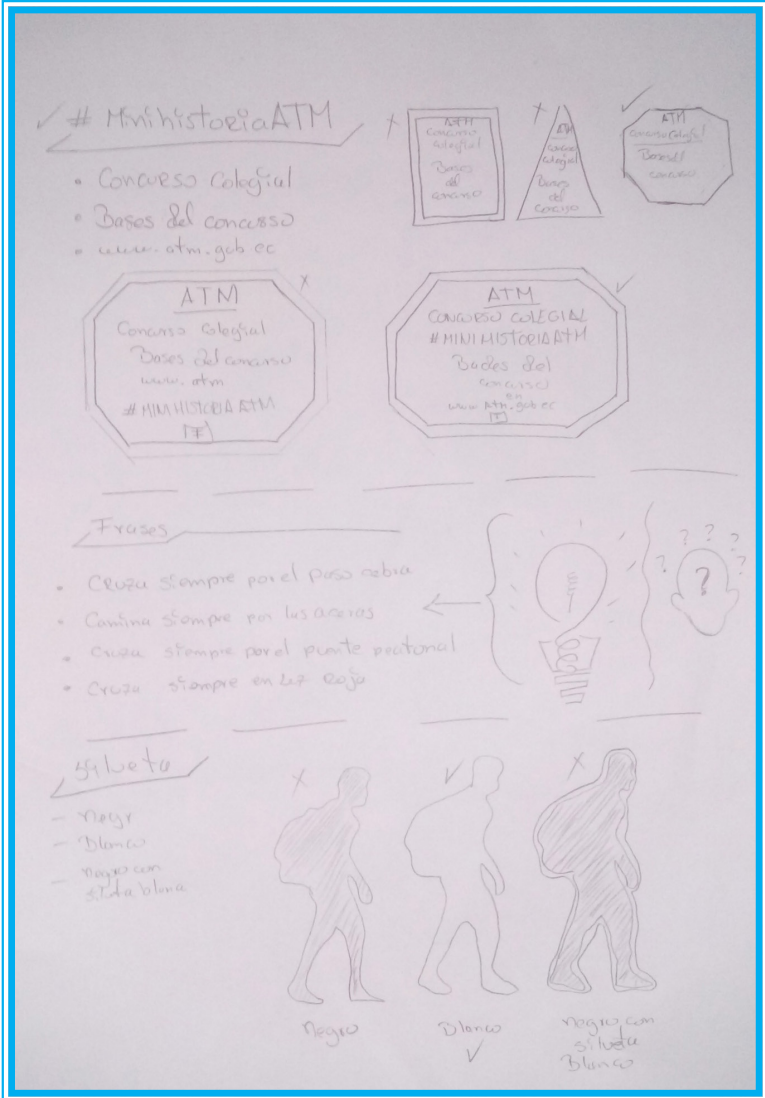 # MinihistoriaATM
• Concurso Colegial
• Bases del concurso
• www.atm.gob.ec
ATM
Concurso
Colegial
Bases
del
concurso
ATM
Concurso
Colegial
Bases
del
Concurso
ATM
Concurso Colegial
Bases del
concurso
ATM
Concurso Colegial
Bases del concurso
www.atm
#MINIHISTORIA ATM
ATM
CONCURSO COLEGIAL
#MINIHISTORIAATM
Bases del
concurso
en
www.atm.gob.ec
Frases
• Cruza siempre por el paso cebra
• Camina siempre por las aceras
• Cruza siempre por el puente peatonal
• Cruza siempre en luz Roja
? ? ? ? ?
?
Silueta
- negr
- Blanco
- negro con
Negro
Blanco
negro con
silueta
Blanco